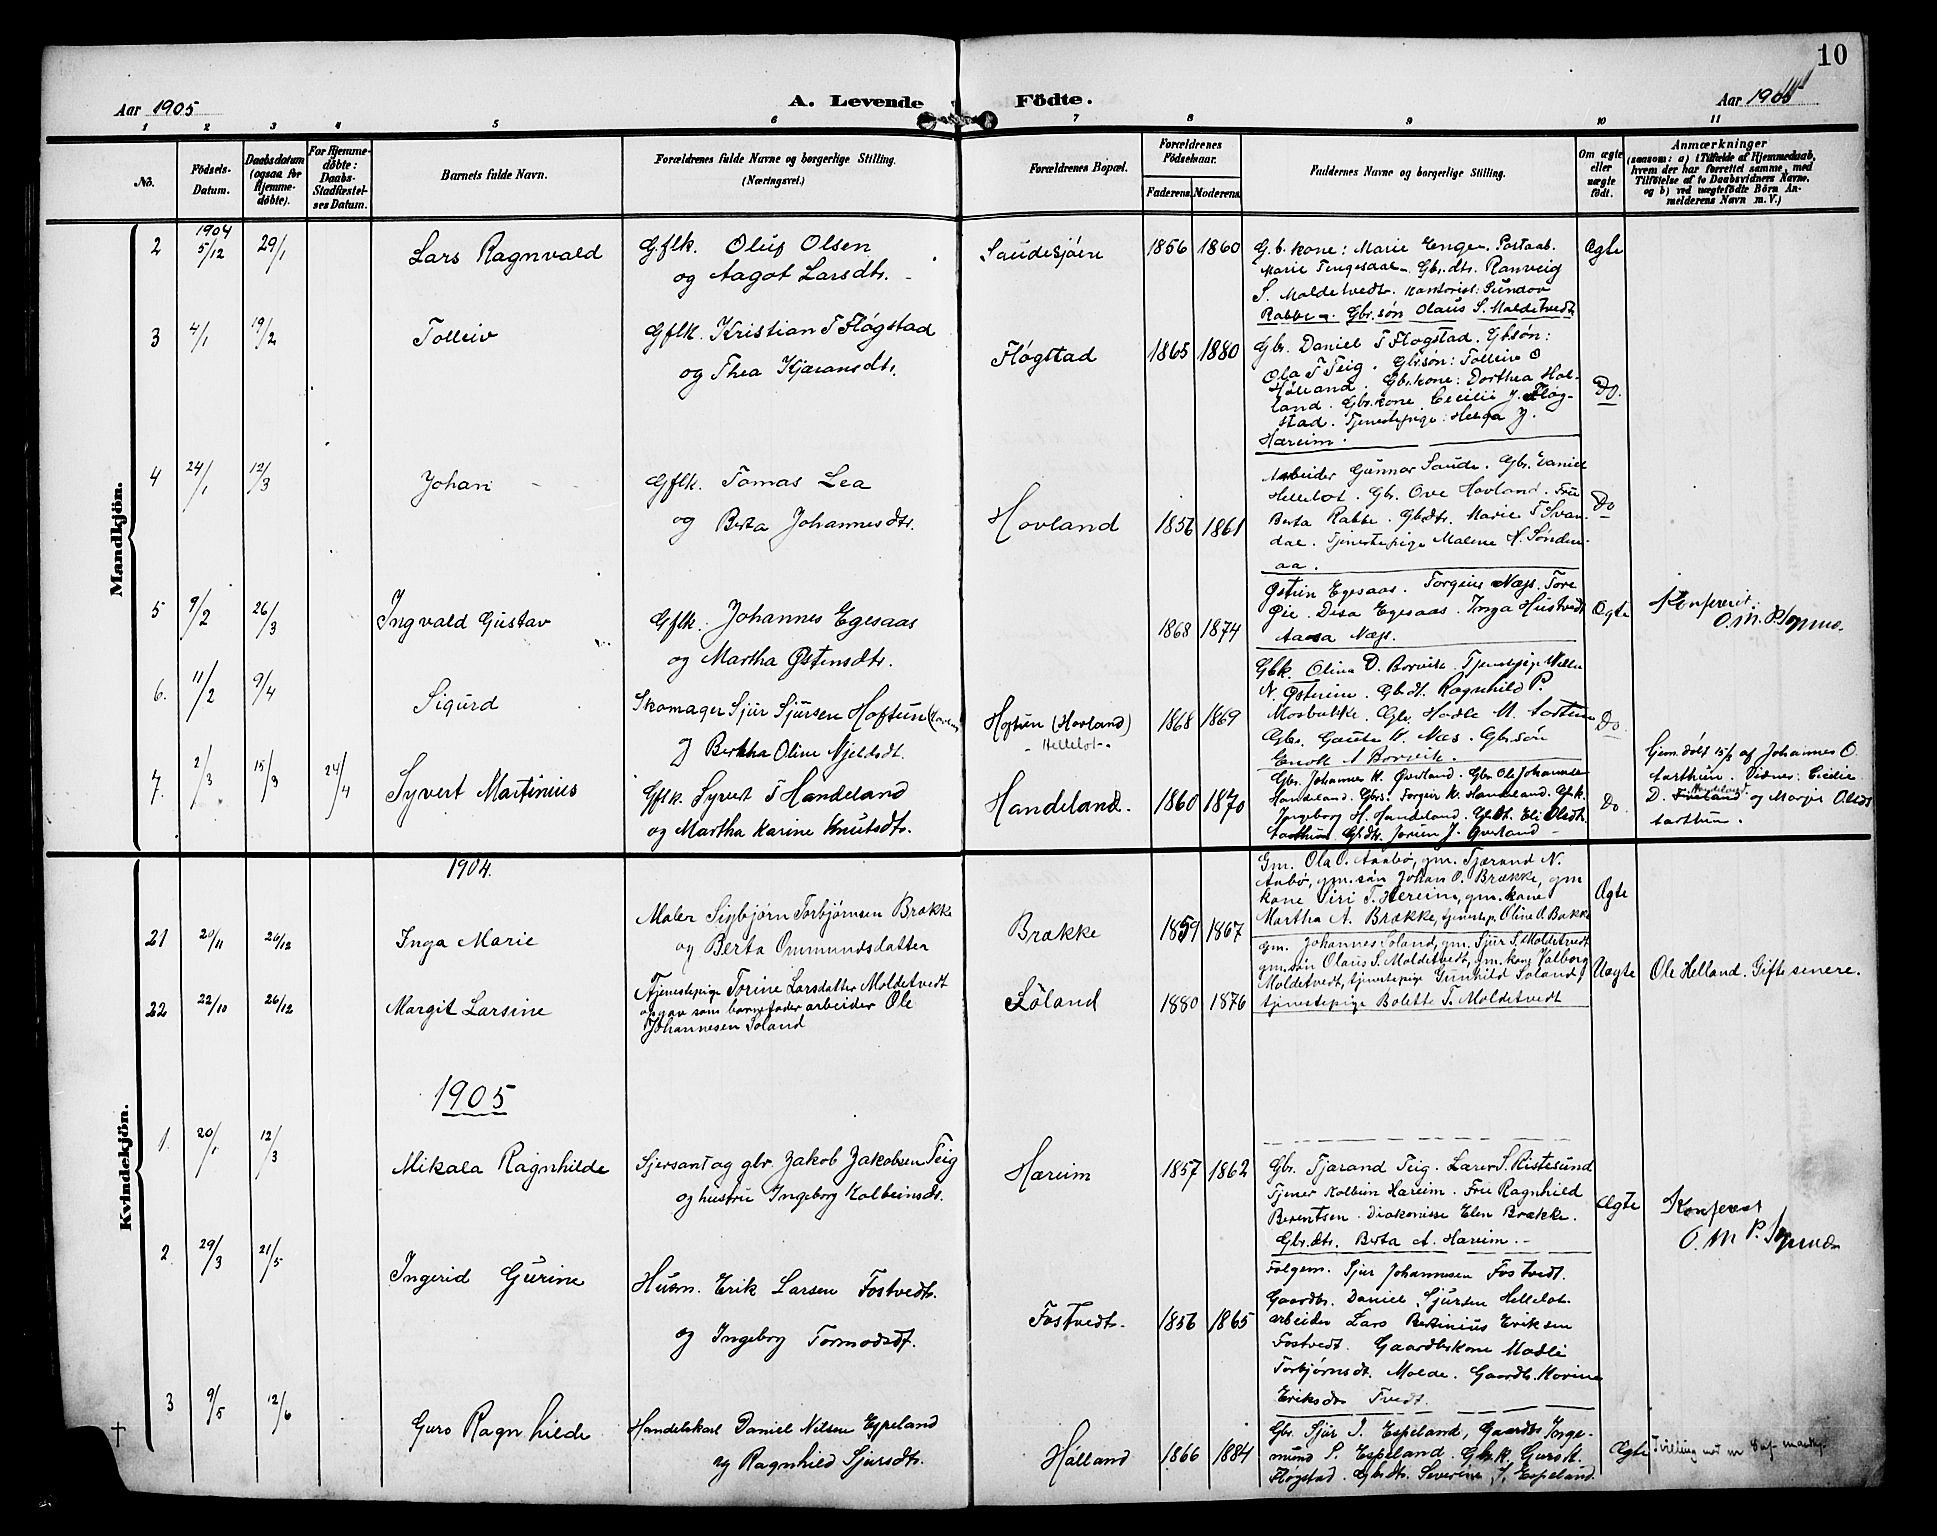 10
Aar 1905
A. Levende
Födte.
Aar 1905
1 2 3 4 5 6 7 8 9 10 11
No.
Födsels-
Datum.
Daabsdatum
(ogsaa for
Hjemme-
döbte).
For Hjemme-
döbte:
Daabs-
Stadfæstel-
ses Datum.
Barnets fulde Navn.
Forældrenes fulde Navne og borgerlige Stilling.
(Næringsvei.)
Forældrenes Bopæl.
Forældrenes
Födselsaar.
Faderens. Moderens.
Faddernes Navne og borgerlige Stilling.
Om ægte
eller
uægte
födt.
Anmærkninger
(saasom: a) i Tilfælde af Hjemmedaab,
hvem der har forrettet samme, med
Tilföielse af to Daabsvidners Navne,
og b) ved uægtefödte Börn An-
melderens Navn m. V.)
Mandkjön.
2
1904
5/12
29/1
Lars Ragnvald
Gflk. Oluf Olsen
og Aagot Larsdtr.
Saudesjøen
1856 1860
G.b. kone: Marie Enge. Postaab.
Marie Tengesdal. Gbr.dtr. Ranveig
S. Moldetvedt. Kontorist: Gundov
Rabbe. Gbr.søn Olaus S. Moldetvedt
Ægte
3
4/1
19/2
Tolleiv
Gflk. Kristian T Fløgstad
og Thea Kjæransdtr.
Fløgstad
1865 1880
Gbr. Daniel T Fløgstad. Gbsøn:
Ola T Teig. Gbrsøn: Tolleiv O
Høiland. Gbr.kone: Dorthea Høi-
land. Gbr.kone Cecilie J. Fløg-
stad. Tjenestepige: Helga J.
Hareim.
Do.
4
24/1
12/3
Johan
Gflk. Tomas Lea
og Berta Johannesdtr.
Hovland
1856 1861
Arbeider Gunnar Saude. Gbr. Daniel
Hellelot. Gbr. Ove Hovland. Fru
Berta Rabbe. Gbdtr. Marie T Svan-
dal. Tjenestepige Malene N. Sønden-
aa.
Do
5
9/2
26/3
Ingvald Gustav
Gflk. Johannes Egesaas
og Martha Østensdtr.
1868 1874
Østen Egesaas. Torgeius Næss. Tore
Øie. Disa Egesaas. Inga Hustvedt
Aasa Næss.
Ægte
Konfereret:
O. M. P.
6.
11/2
9/4
Sigurd
Skomager Sjur Sjursen Hoftun
og Bertha Oline Njeldsdt.
Hoftun (Hovland)
Hellelot
1868 1869
Gbk. Olina D. Borvik. Tjenstpige
N. Østerim. Gbdt. Ragnhild P.
Mosbakke. Gbr. Hadle M. Aarthun
Gbr. Gaute V. Næs. Gbrsøn
Enok A Borvik.
Do.
7.
2/3
15/3
24/4
Syvert Martinius
Gflk. Syvert T Handeland
og Martha Karine Knutsdtr.
Handeland.
1860 1870
Gbr. Johannes K. Øverland. Gbr. Ole Johannesen
Handeland. Gbrs. Torgeir K. Handeland. Gbk.
Ingeborg H. Handeland. Gbdt. Eli Olsdt.
Aarthun. Gbdtr. Jorun J. Øverland.
Do.
Hjem.døbt 15/3 af Johannes O.
Aarthun. Vidner: Cecilie
D. Handeland og Margit Olsdt
Aarthun.
Kvindekjön.
1904.
21
20/11
26/12
Inga Marie
Maler Sigbjørn Torbjørnsen Brække
og Berta Ommundsdatter
Brække
1859 1867
Gm. Ola O. Aabø, gm. Tjærand N.
Aabø, gm. søn Johan O. Brække, gm
kone Siri T. Hereim, gm. kone
Martha A. Brække, tjenestep. Oline O. Bakke
Ægte
22
22/10
26/12
Margit Larsine
Tjenestepige Torine Larsdatter Moldetvedt
opgav som barnefader arbeider Ole
Johannesen Løland
Löland
1880 1876
gm. Johannes Løland, gm. Sjur S. Moldetvedt
gm. søn Olaus S. Moldetvedt, gm. kone Valborg
Moldetvedt, tjenestepige Gunhild Løland,
tjenestepige Bolette T. Moldetvedt
Uægte
Ole Helland. Gifte senere.
1905
1.
20/1
12/3
Mikala Ragnhilde
Sjersant og gbr. Jakob Jakobsen Teig
og hustru Ingeborg Kolbeinsdr.
Hareim
1857 1862
Gbr. Tjærand Teig. Lærer S. Ristesund
Tjener Kolbein Hareim. Fru Ragnhild
Berentsen. Diakonisse Elen Brække.
Gbr.dtr. Berta A. Hareim.
Ægte
Konferert
O. M. P.
2.
29/3
21/5
Ingerid Gurine
Husm. Erik Larsen Fostvedt.
og Ingeborg Tormodsdt.
Fostvedt.
1856 1865
Følgem. Sjur Johannesen Fostvedt.
Gaardbr. Daniel Sjursen Hellelot.
arbeider Lars Bertinius Eriksen
Fostvedt. Gaardbkone Madli
Torbjørnsdt. Molde. Gaardb. Korine
Eriksdr Tvedt.
3
9/5
12/6
Guro Ragnhilde
Handelskarl Daniel Nilsen Espeland
og Ragnhild Sjursdtr.
Halland
1866 1884
Gbr. Sjur I. Espeland, Gaardb. Inge-
mund S. Espeland. Gbr.k. Guro K.
Fløgstad. Gbrdtr. Severine I. Espeland.
Ægte
Tvilling mot nr 8